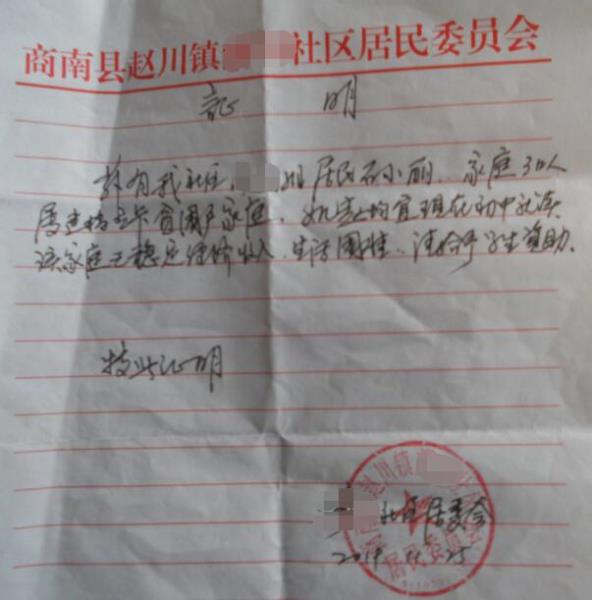 商南县赵川镇 社区居民委员会
证 明
兹有我社区 组居民石小丽 家庭3口人
属建档立卡贫困户家庭 现在初中就读
该家庭无稳定经济收入、生活困难、请给予学生资助。
特此证明
社区居委会
25
赵川镇
居民委员会